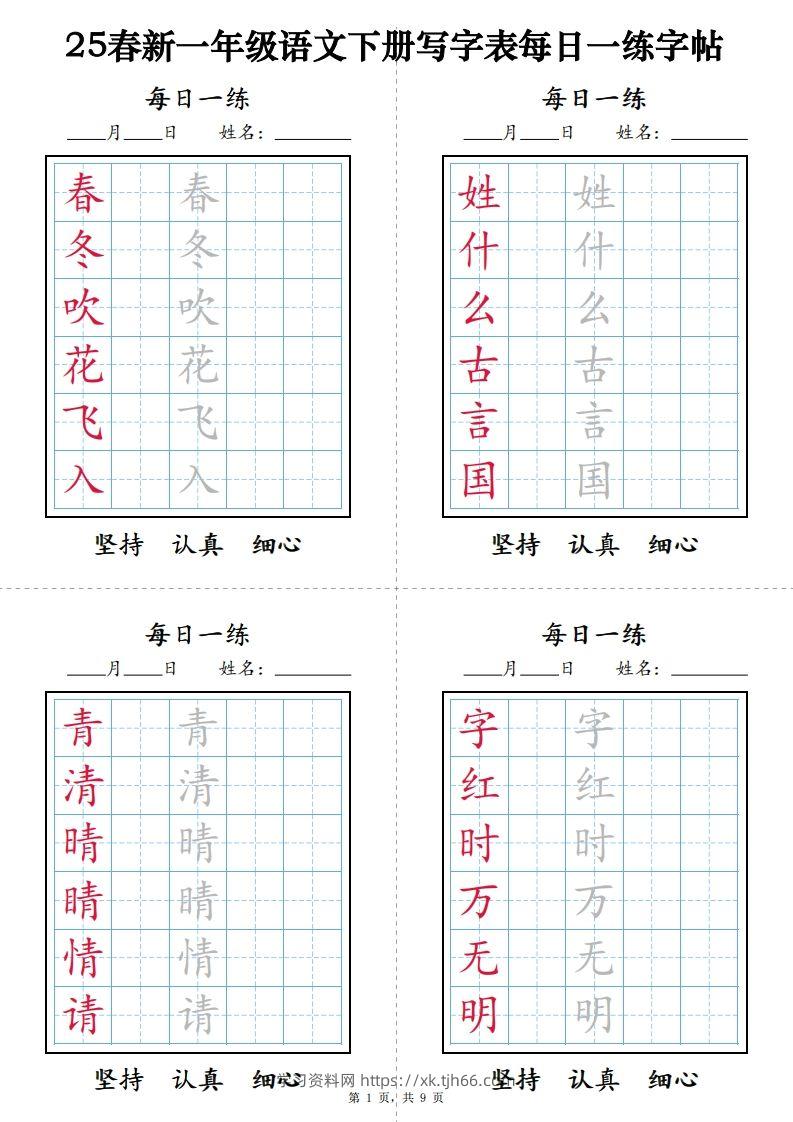 25春新一年级语文下册写字表每日一练字帖
每日一练
____月____日 姓名：________
春 春
冬 冬
吹 吹
花 花
飞 飞
入 入
坚持 认真 细心
每日一练
____月____日 姓名：________
姓 姓
什 什
么 么
古 古
言 言
国 国
坚持 认真 细心
每日一练
____月____日 姓名：________
青 青
清 清
晴 晴
睛 睛
情 情
请 请
坚持 认真 细心
每日一练
____月____日 姓名：________
字 字
红 红
时 时
万 万
无 无
明 明
坚持 认真 细心
学习资料网 https://xk.tjh66.com
第 1 页，共 9 页